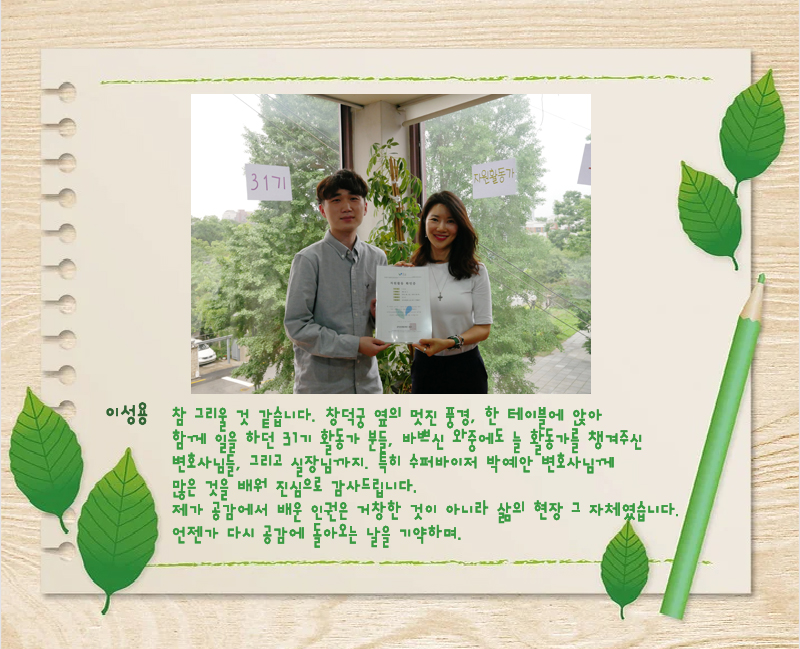 31기
자원활동가
이성용 참 그리울 것 같습니다. 창덕궁 옆의 멋진 풍경, 한 테이블에 앉아
함께 일을 하던 31기 활동가 분들, 바쁘신 와중에도 늘 활동가를 챙겨주신
변호사님들, 그리고 실장님까지. 특히 수퍼바이저 박예안 변호사님께
많은 것을 배워 진심으로 감사드립니다.
제가 공감에서 배운 인권은 거창한 것이 아니라 삶의 현장 그 자체였습니다.
언젠가 다시 공감에 돌아오는 날을 기약하며.